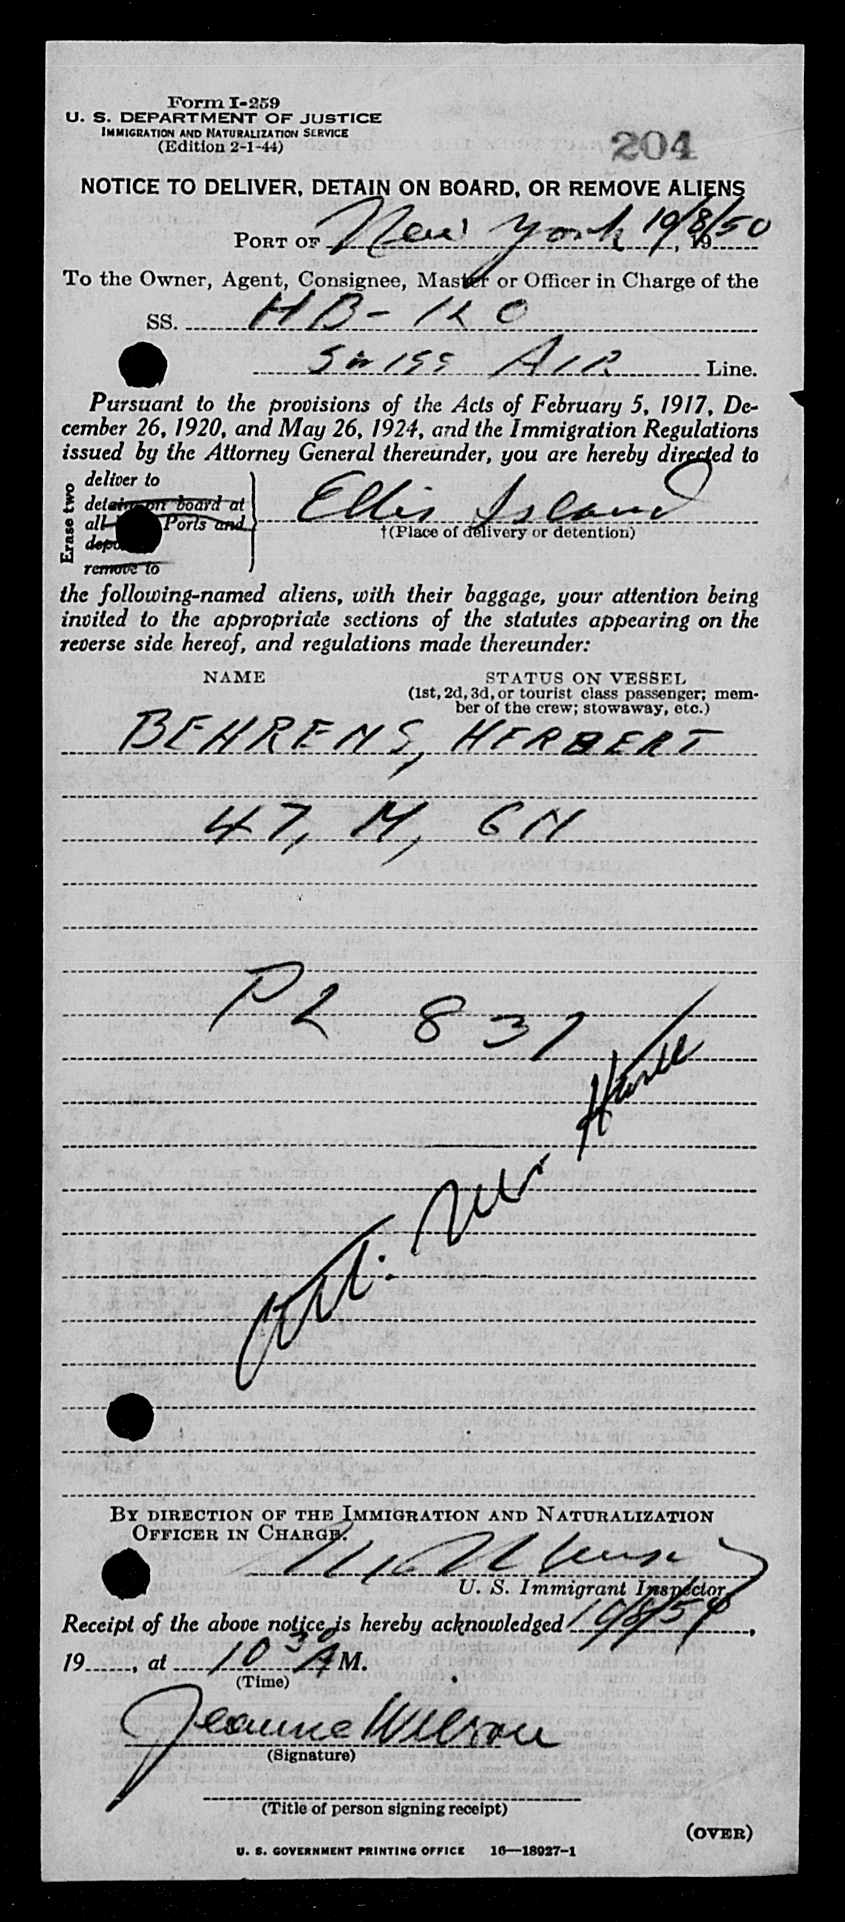 Form I-259
U. S. DEPARTMENT OF JUSTICE
IMMIGRATION AND NATURALIZATION SERVICE
(Edition 2-1-44)
204
NOTICE TO DELIVER, DETAIN ON BOARD, OR REMOVE ALIENS
PORT OF New York 10/8/50, 19
To the Owner, Agent, Consignee, Master or Officer in Charge of the
SS. HB-
Swiss AIR Line.
Pursuant to the provisions of the Acts of February 5, 1917, De-
cember 26, 1920, and May 26, 1924, and the Immigration Regulations
issued by the Attorney General thereunder, you are hereby directed to
Erase two
deliver to
detain on board at
all Ports and
remove to
Ellis Island
†(Place of delivery or detention)
the following-named aliens, with their baggage, your attention being
invited to the appropriate sections of the statutes appearing on the
reverse side hereof, and regulations made thereunder:
NAME STATUS ON VESSEL
(1st, 2d, 3d, or tourist class passenger; mem-
ber of the crew; stowaway, etc.)
BEHRENS, HERBERT
47, M,
P2 837
BY DIRECTION OF THE IMMIGRATION AND NATURALIZATION
OFFICER IN CHARGE.
U. S. Immigrant Inspector
Receipt of the above notice is hereby acknowledged 10/8/50,
19, at 10 30 A M.
(Time)
Jeanne Wilson
(Signature)
(Title of person signing receipt)
(OVER)
U. S. GOVERNMENT PRINTING OFFICE 16—18927-1